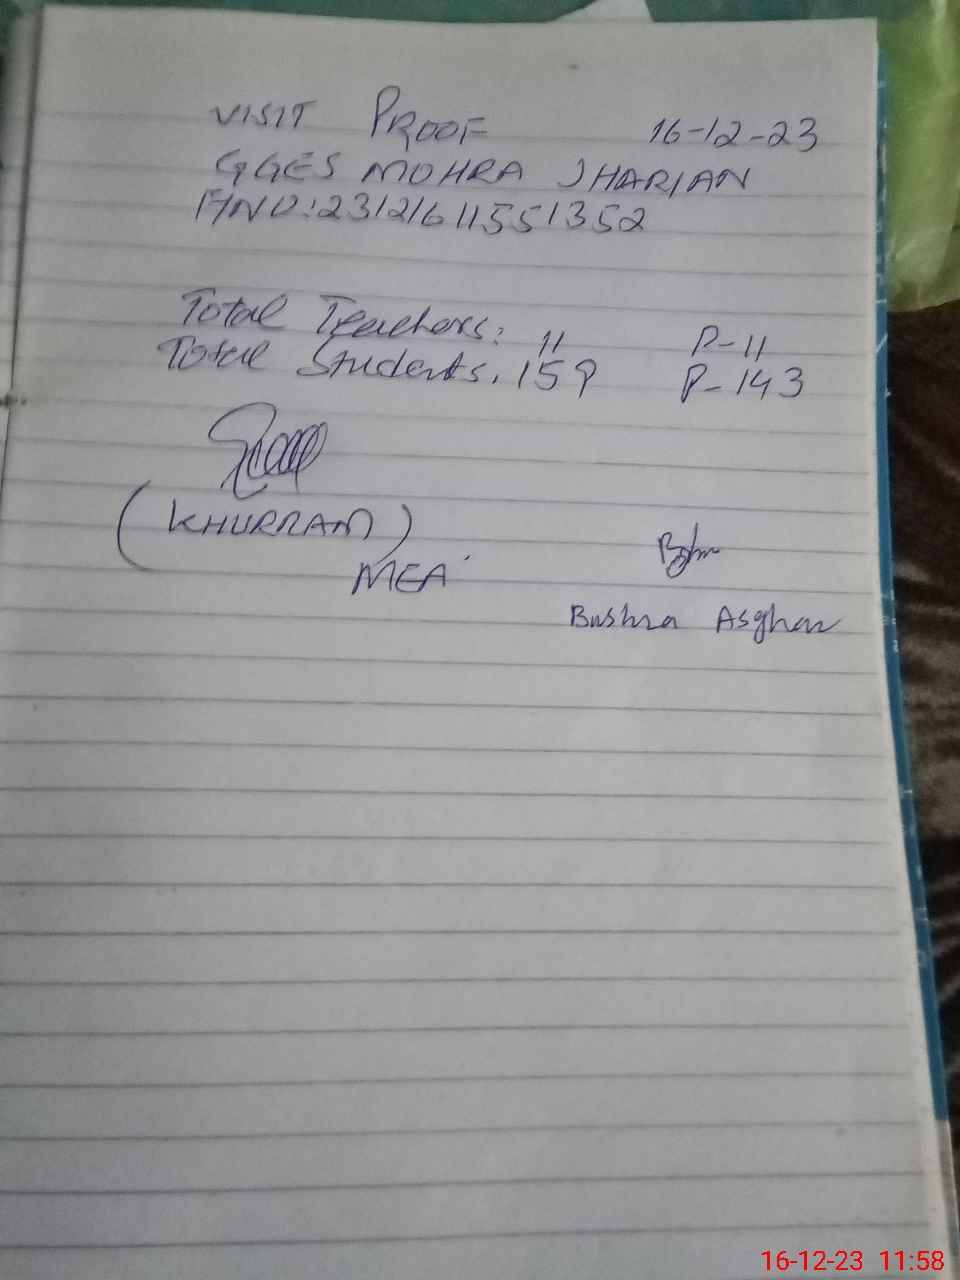 VISIT PROOF 16-12-23
GGES MOHRA JHARIAN
F/NO:23121611551352
Total Teachers: 11 P-11
Total Students. 159 P-143
(KHURRAM)
MEA
Bushra Asghar
16-12-23 11:58